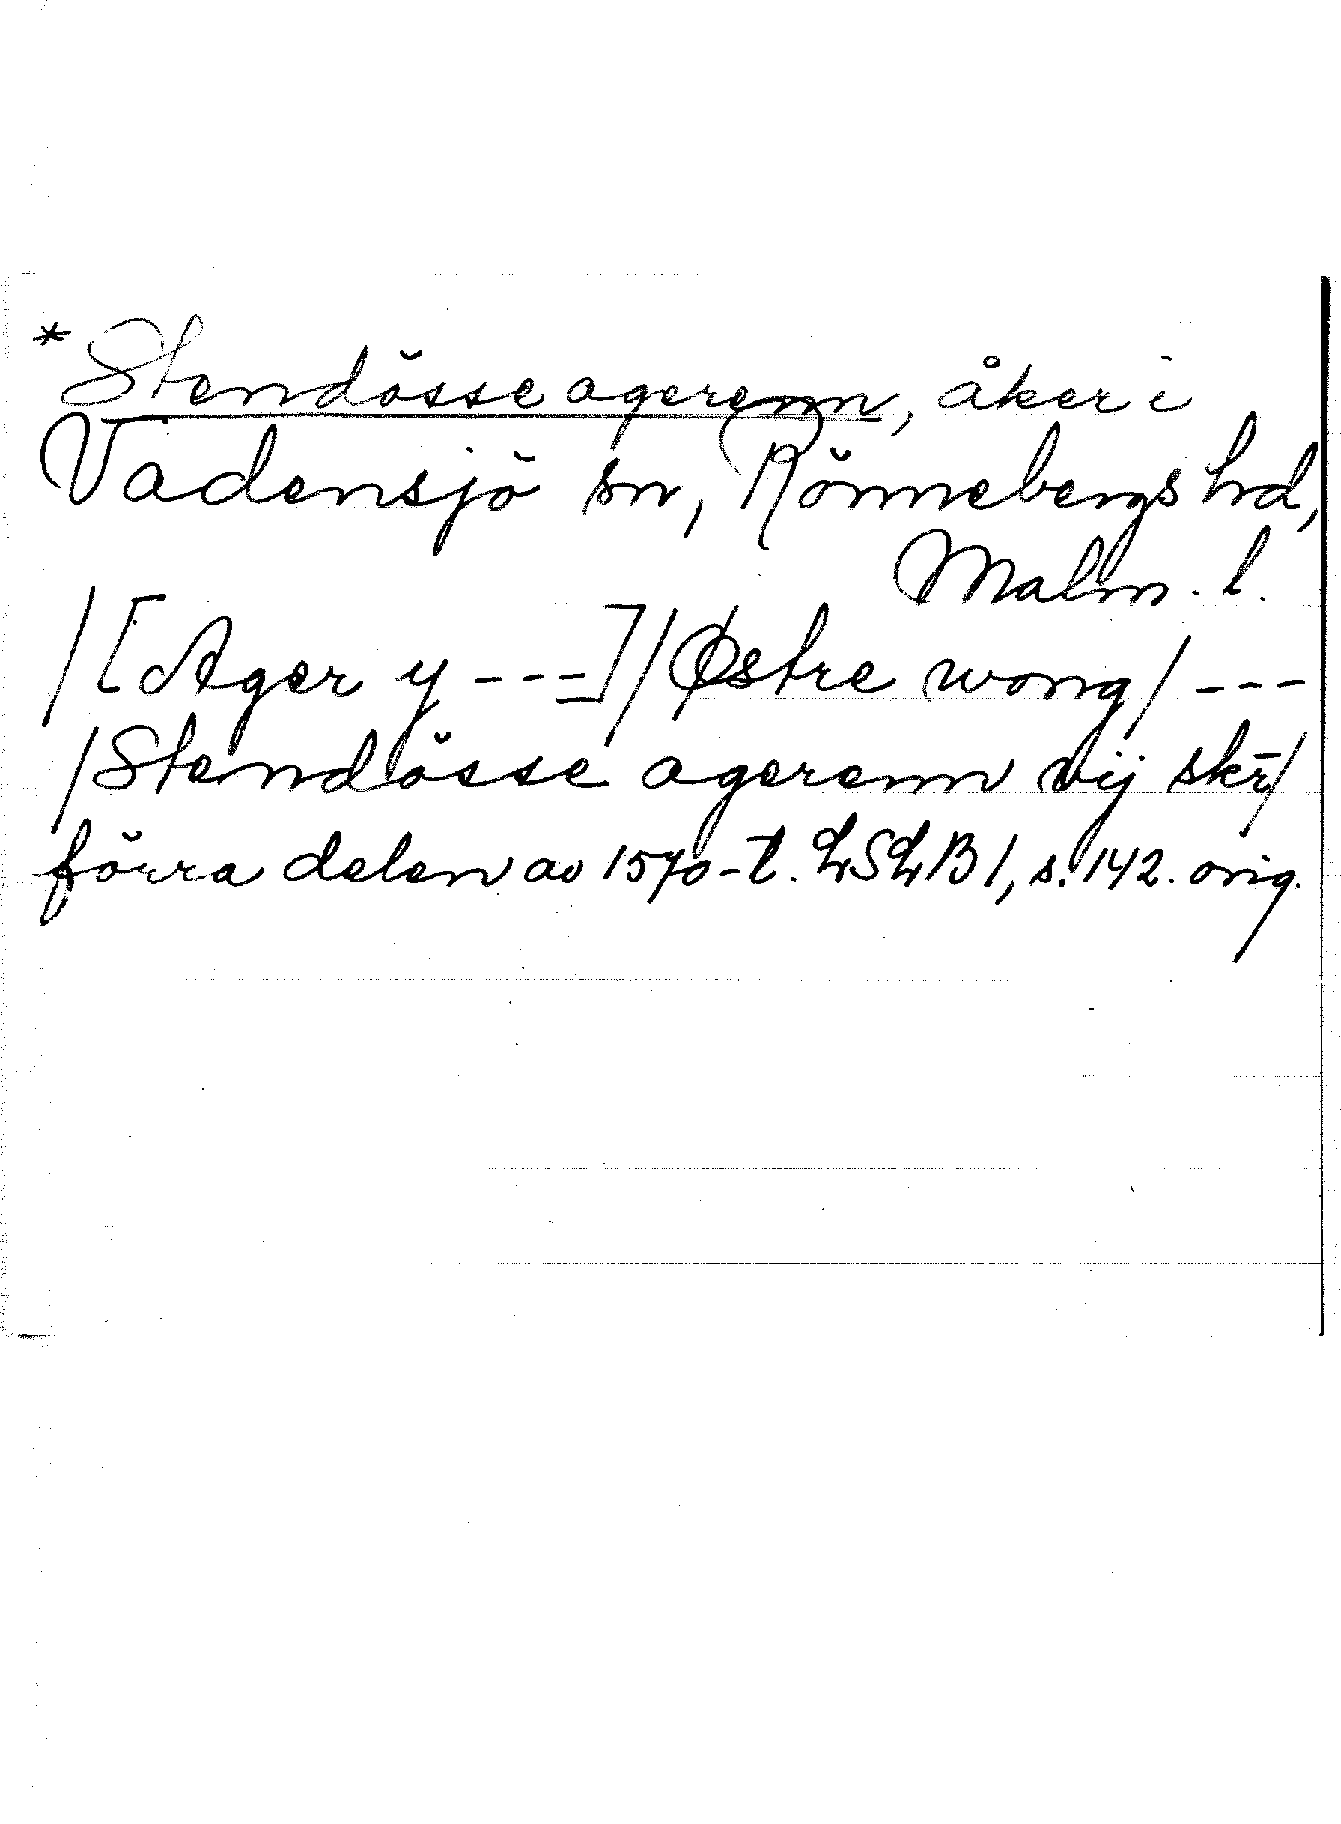 * Stendösse agerenn, åker i
Vadensjö sn, Rönnebergs hd,
Malm. l.
/[Ager y ---]/Østre wong/ ---
/Stendösse agerenn vij skr̄/
förra delen av 1570-t. LSLB 1, s. 142. orig.